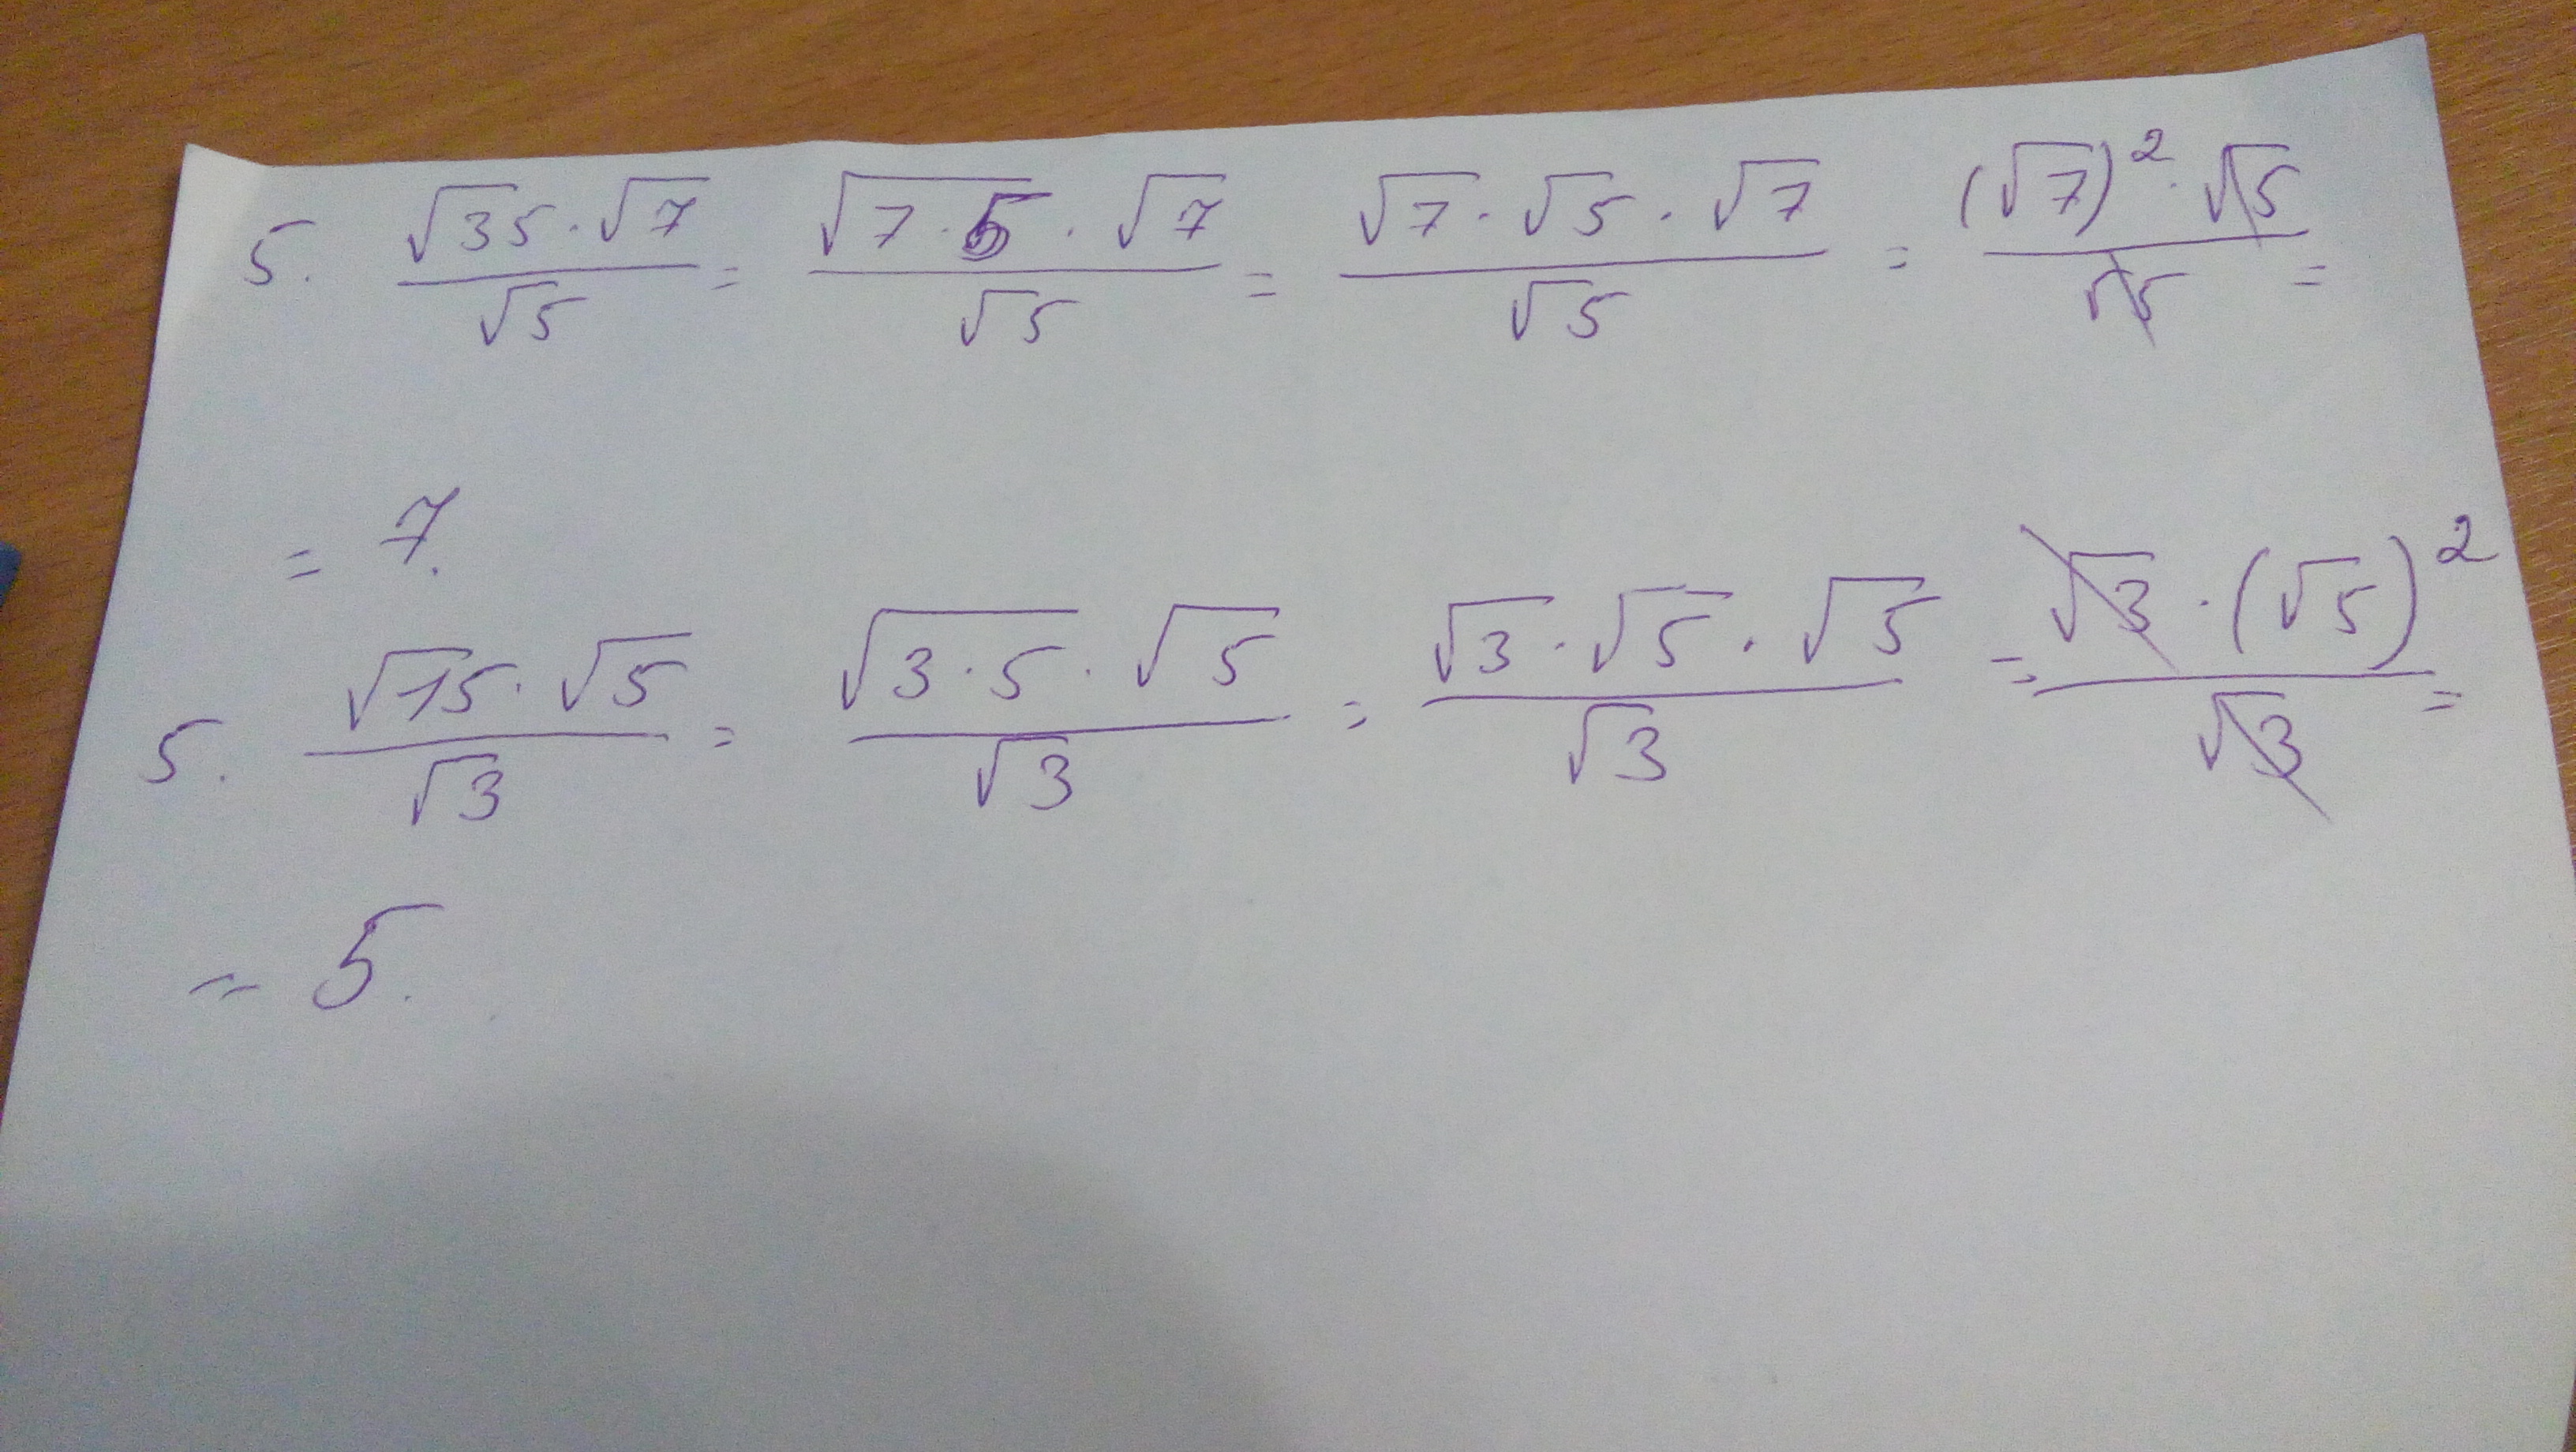 5. √35·√7/√5 = √(7·5)·√7/√5 = √7·√5·√7/√5 = (√7)²·√5/√5 =
= 7.
5. √15·√5/√3 = √(3·5)·√5/√3 = √3·√5·√5/√3 = √3·(√5)²/√3 =
= 5.